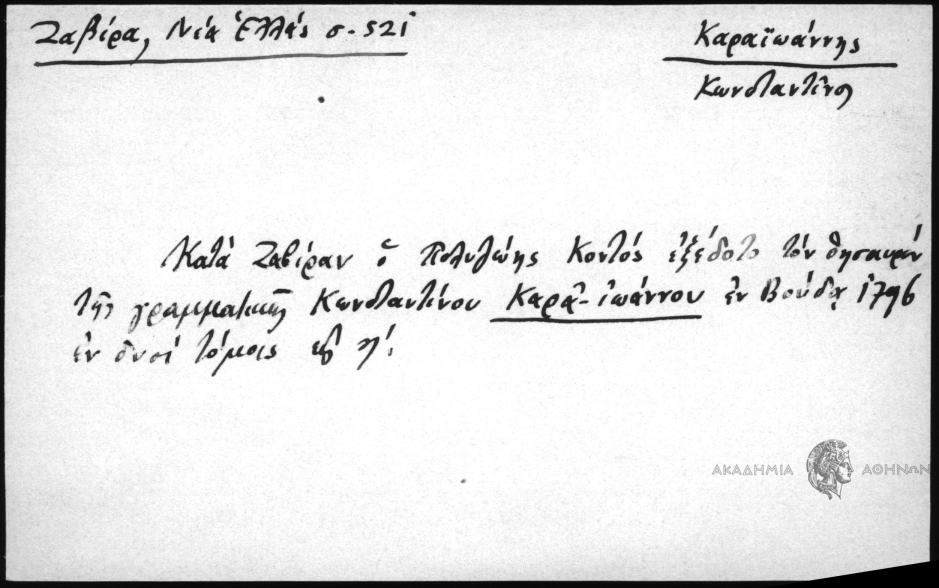 Ζαβίρα, Νέα Ἑλλάς σ. 521
Καραϊωάννης
Κωνσταντῖνος
Κατὰ Ζαβίραν ὁ Πολυζώης Κοντός ἐξέδοτο τὸν θησαυρόν
τῆς γραμματικῆς Κωνσταντίνου Καρᾶ-ἰωάννου ἐν Βούδᾳ 1796
ἐν δυσὶ τόμοις εἰς η΄.
ΑΚΑΔΗΜΙΑ ΑΘΗΝΩΝ